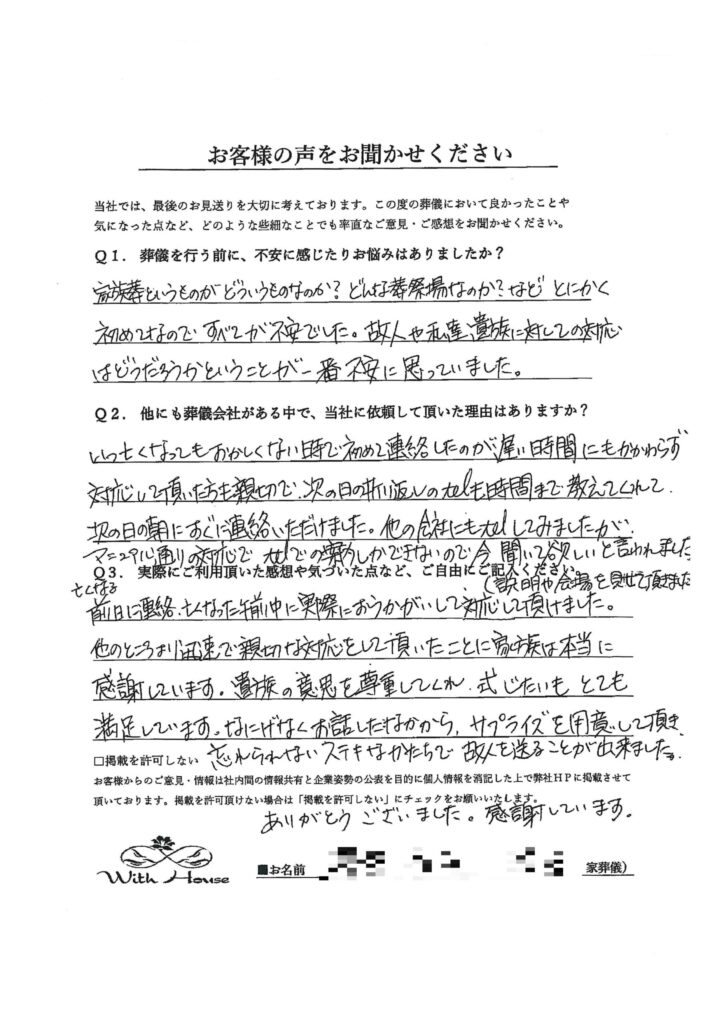 お客様の声をお聞かせください
当社では、最後のお見送りを大切に考えております。この度の葬儀において良かったことや
気になった点など、どのような些細なことでも率直なご意見・ご感想をお聞かせください。
Q1. 葬儀を行う前に、不安に感じたりお悩みはありましたか？
家族葬というものがどういうものなのか？どんな葬祭場なのか？などとにかく
初めてなのですべてが不安でした。故人や私達遺族に対しての対応
はどうだろうかということが一番不安に思っていました。
Q2. 他にも葬儀会社がある中で、当社に依頼して頂いた理由はありますか？
いつ亡くなってもおかしくない時で初めて連絡したのが遅い時間にもかかわらず
対応して頂いた方も親切で、次の日の折り返しのtelも時間まで教えてくれて、
次の日の朝にすぐに連絡いただけました。他の会社にもtelしてみましたが、
マニュアル通りの対応でtelでの案内しかできないので今聞いて欲しいと言われました
Q3. 実際にご利用頂いた感想や気づいた点など、ご自由にご記入ください。
(説明や会場を見せて頂きました
亡くなる
前日に連絡、亡くなった午前中に実際におうかがいして対応して頂けました。
他のところより迅速で親切な対応をして頂いたことに家族は本当に
感謝しています。遺族の意思を尊重してくれ、式じたいもとても
満足しています。なにげなくお話したなかから、サプライズを用意して頂き
□掲載を許可しない 忘れられないステキなかたちで故人を送ることが出来ました。
お客様からのご意見・情報は社内間の情報共有と企業姿勢の公表を目的に個人情報を消記した上で弊社HPに掲載させて
頂いております。掲載を許可頂けない場合は「掲載を許可しない」にチェックをお願いいたします。
ありがとうございました。感謝しています。
With House
■お名前 家葬儀）